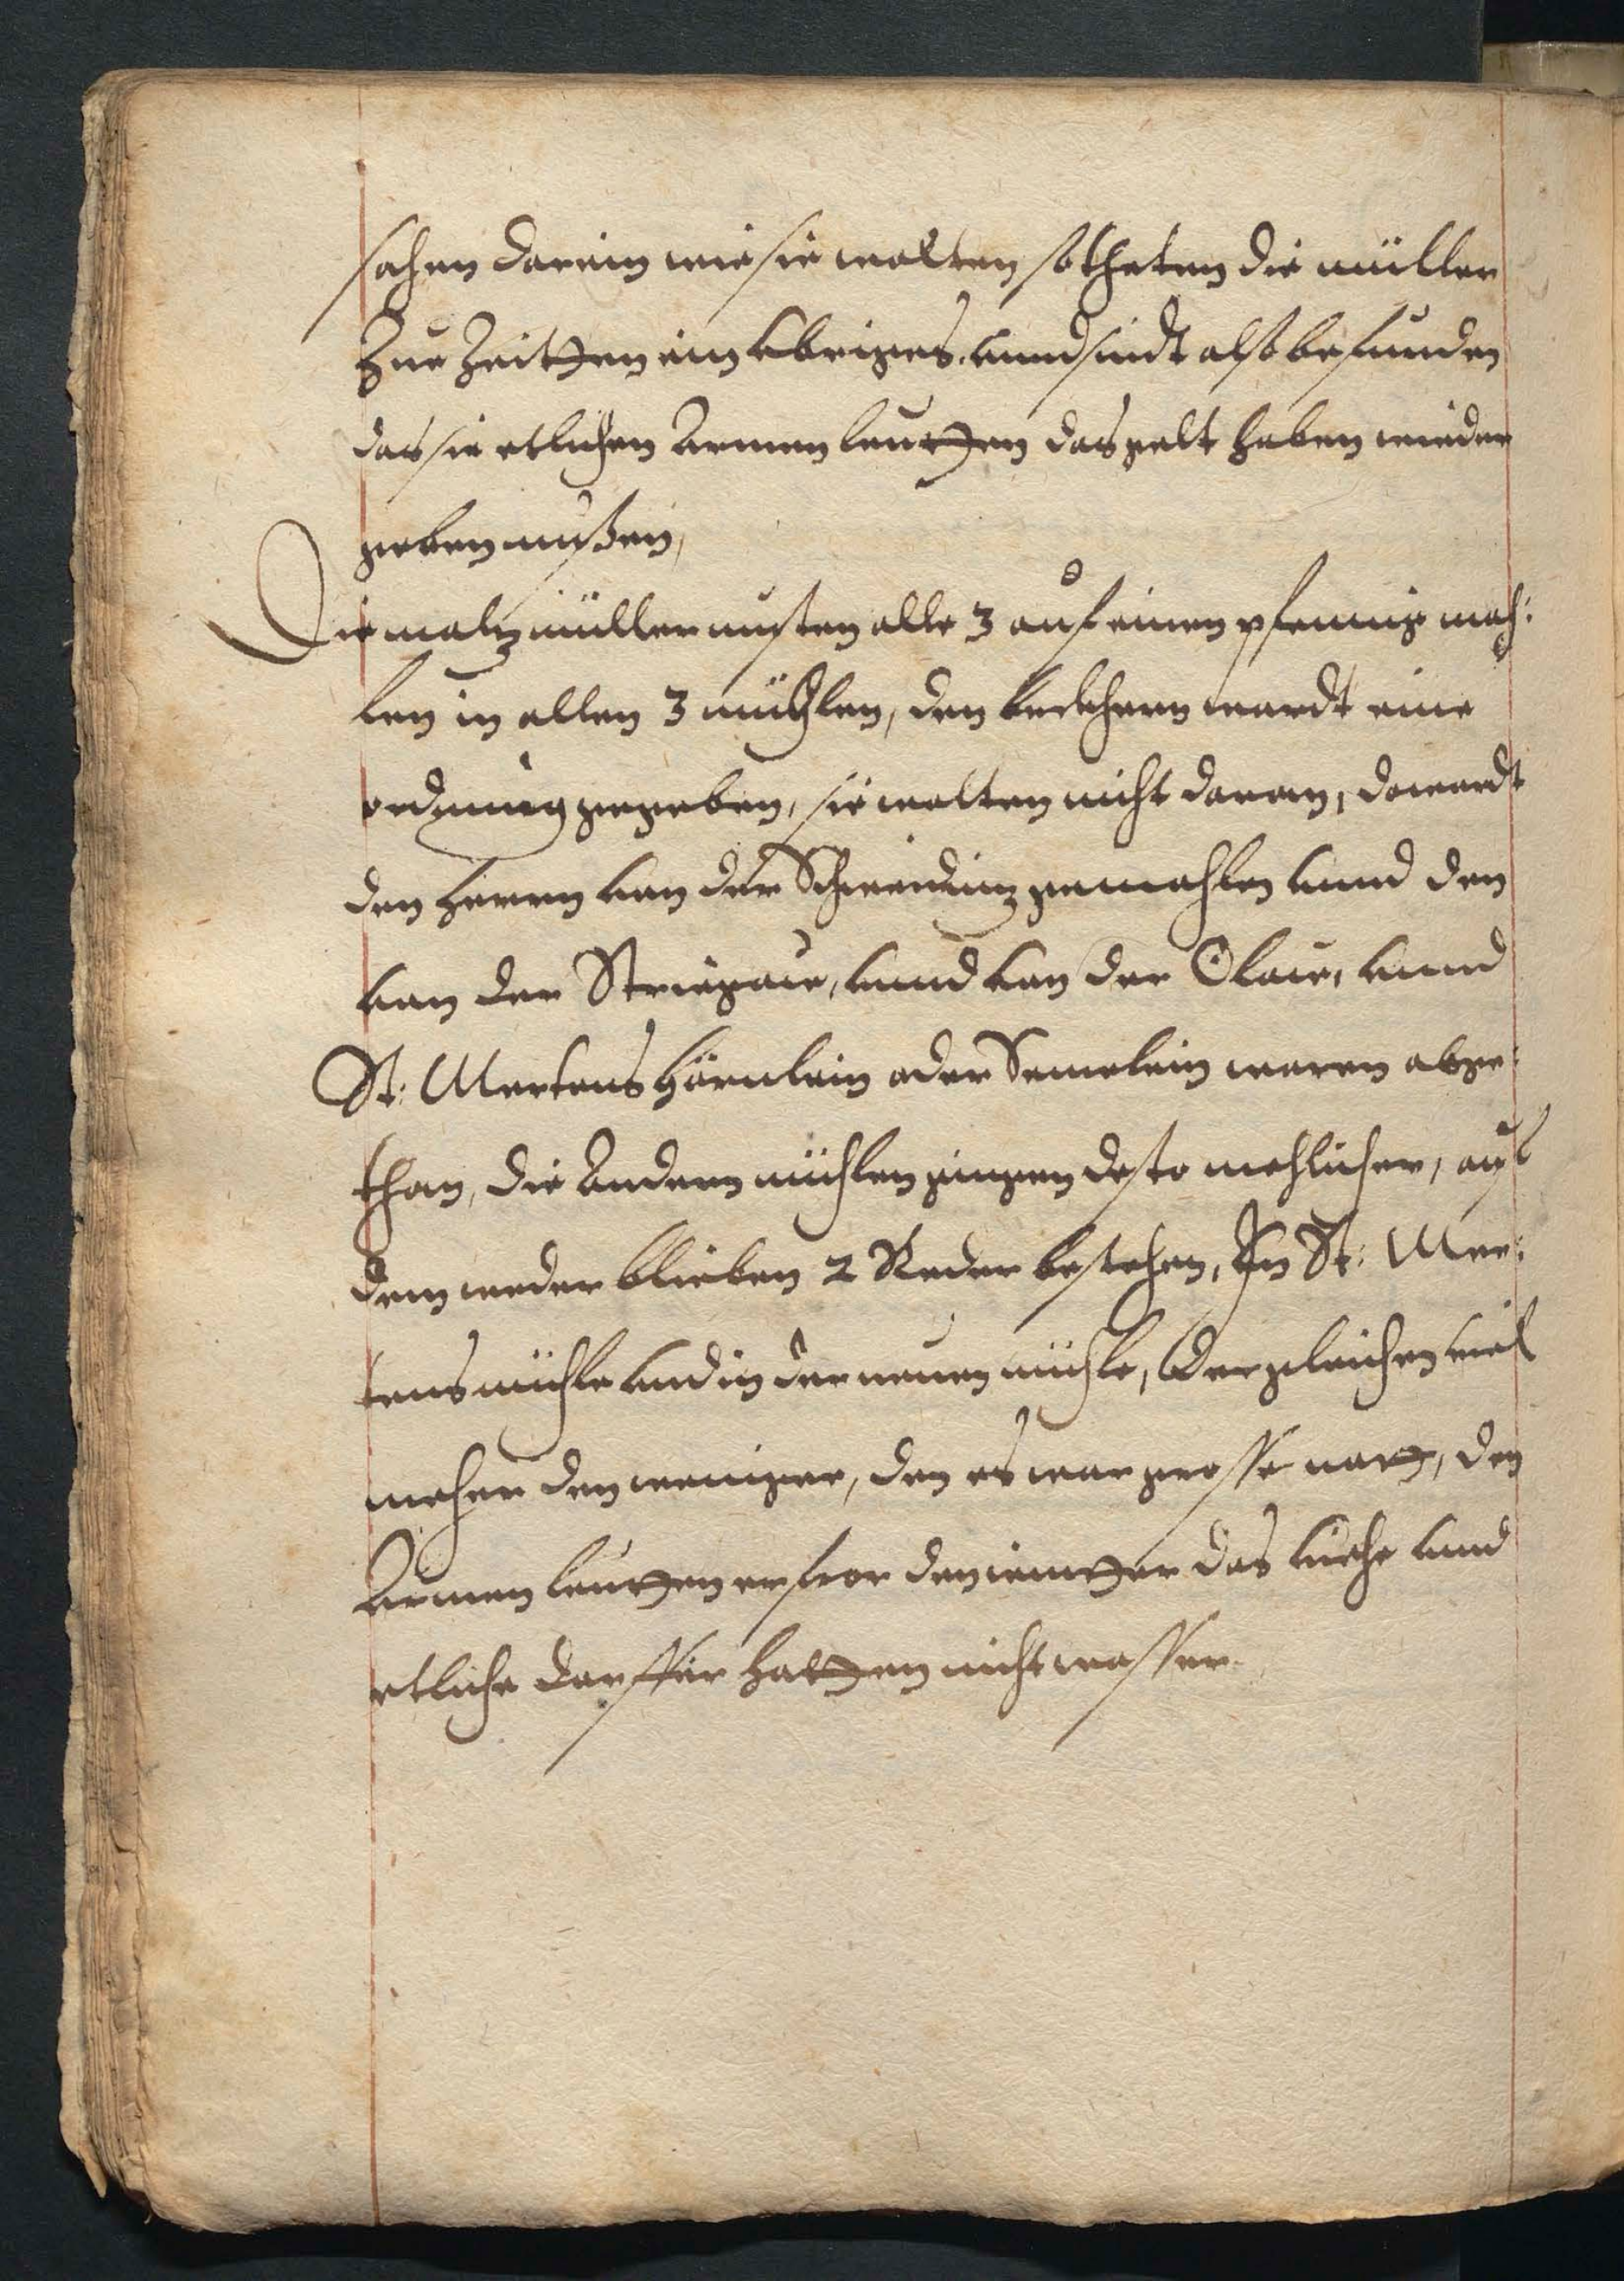 sahen darein wie sie wolten so theten die müller
Zur Zeitten ein Vbriges. vnnd sindt also befunden
das sie etlichen Armen leutten das gelt haben wieder
geben mußen,
Die maltzmüller musten alle 3 auf einen pfennig mah:
len in allen 3 mühlen, den beckhern wardt eine
ordnung gegeben, sie wolten nicht daran, da wardt
den herrn von der Schweidnitz gemahlen vnnd den
von der Striegaw, vnnd von der Olaw, vnnd
St: Mertens hörnlein oder Semelein waren abge:
than, die Andern mühlen gingen desto mehlicher, auf
dem weder blieben 2 Reder bestehen, In St: Mer:
tens mühle vnd in der neuen mühle, Dergleichen viel
meher den weniger, den es war grosse nott, den
Armen leutten erfror den wintter das viehe vnnd
etliche dorffer hatten nicht wasser.